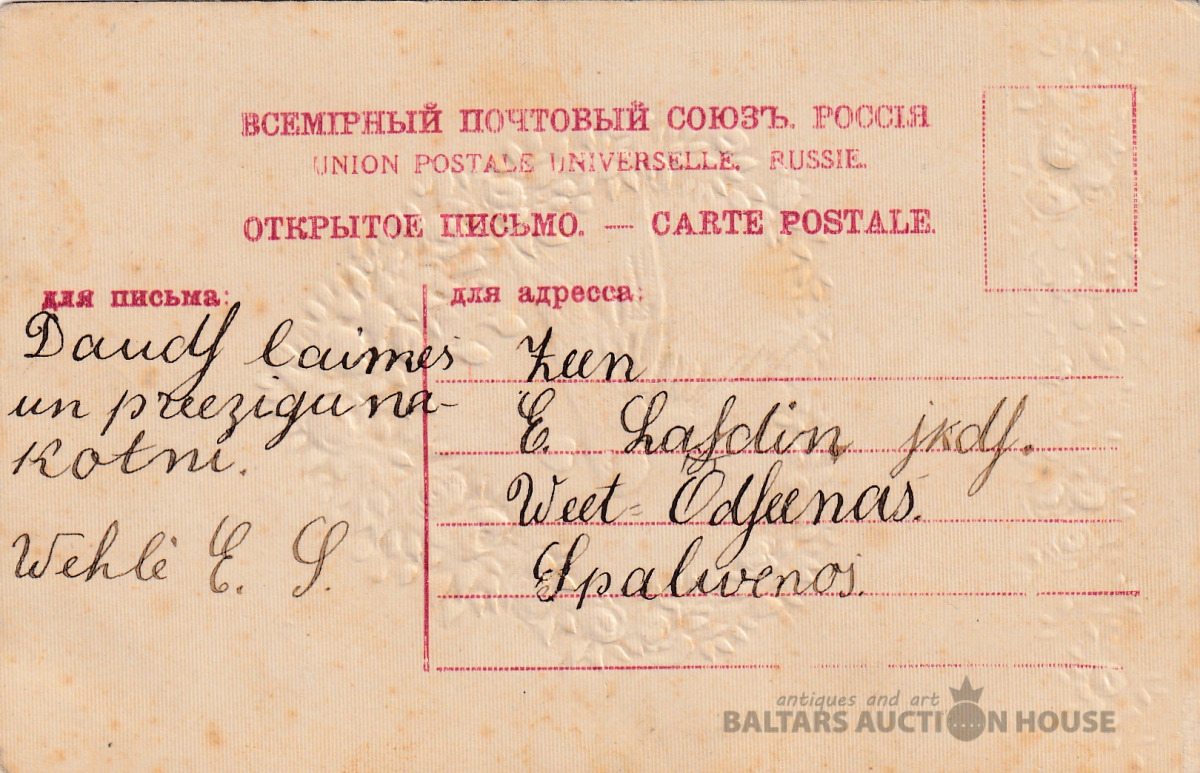 ВСЕМІРНЫЙ ПОЧТОВЫЙ СОЮЗЪ. РОССІЯ
UNION POSTALE UNIVERSELLE. RUSSIE.
ОТКРЫТОЕ ПИСЬМО. — CARTE POSTALE.
для письма:
Daudſ laimes
un preezigu na-
kotni.
Wehlè E. S.
для адресса:
Zeen
E. Laſdin jkdſ.
Weet-Odſeenas.
Spalwenos.
antiques and art
BALTARS AUCTION HOUSE